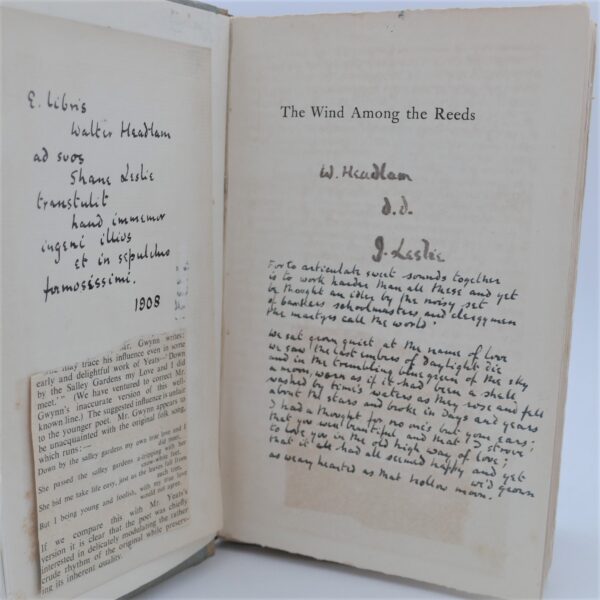 E. Libris
Walter Headlam
ad suos
Shane Leslie
transtulit
haud immemor
ingeni illius
et in sepulchro
formosissimi.
1908
Mr. Gwynn writes:
may trace his influence even in some
early and delightful work of Yeats—'Down
by the Salley Gardens my Love and I did
meet.'" (We have ventured to correct Mr.
Gwynn's inaccurate version of this well-
known line.) The suggested influence is unfair
to the younger poet. Mr. Gwynn appears to
be unacquainted with the original folk song,
which runs:—
Down by the salley gardens my own true love and I
did meet,
She passed the salley gardens a-tripping with her
snow-white feet,
She bid me take life easy, just as the leaves fall from
each tree,
But I being young and foolish, with my true love
would not agree.
If we compare this with Mr. Yeats's
version it is clear that the poet was chiefly
interested in delicately modulating the rather
crude rhythm of the original while preserv-
ing its inherent quality.
The Wind Among the Reeds
W. Headlam
d.d.
J. Leslie
For to articulate sweet sounds together
is to work harder than all these and yet
be thought an idler by the noisy set
of bankers schoolmasters, and clergymen
the martyrs call the world'
We sat grown quiet at the name of love
we saw the last embers of daylight die
and in the trembling blue green of the sky
a moon, worn as if it had been a shell
washed by time's waters as they rose and fell
about the stars and broke in days and years
I had a thought for no one's but your ears:
that you were beautiful and that I strove
to love you in the old high way of love;
that it all had all seemed happy and yet
we'd grown
as weary hearted as that hollow moon.